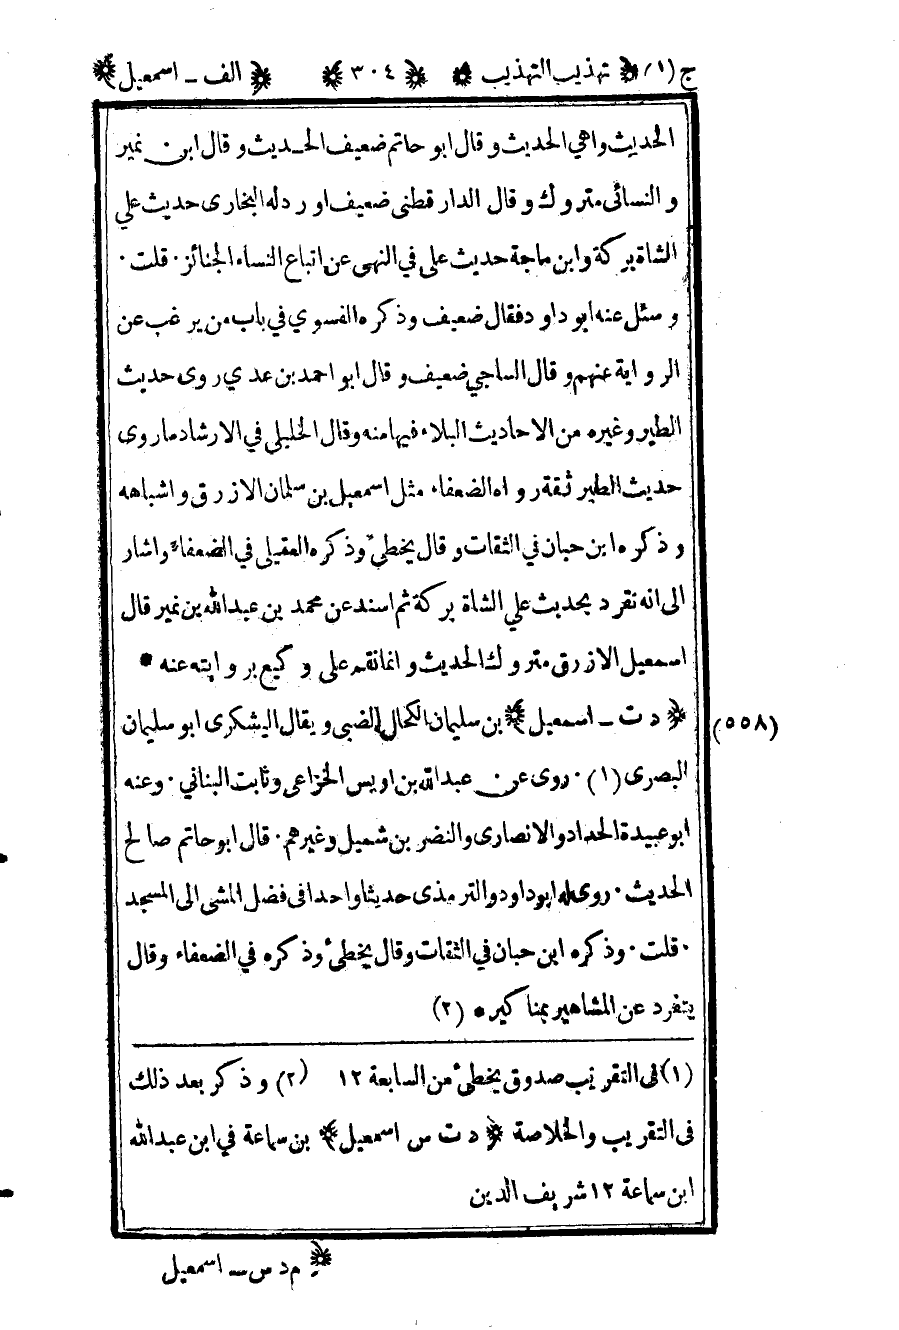 ج (١) ﴿ تهذيب التهذيب ﴾ ﴿ ٣٠٤ ﴾ ﴿ الف ــ اسمعيل ﴾
الحديث واهي الحديث وقال ابو حاتم ضعيف الحــديث وقال ابن نمير
والنسائى متروك وقال الدار قطنى ضعيف اورد له البخارى حديث علي
الشاة بركة وابن ماجة حديث على في النهى عن اتباع النساء الجنائز · قلت ·
وسئل عنه ابو داود فقال ضعيف وذكره الفسوي في باب من يرغب عن
الرواية عنهم وقال الساجي ضعيف وقال ابو احمد بن عدي روى حديث
الطير وغيره من الاحاديث البلاء فيها منه وقال الخليلى في الارشاد ما روى
حديث الطير ثقة رواه الضعفاء مثل اسمعيل بن سلمان الازرق واشباهه
وذكره ابن حبان في الثقات وقال يخطئ وذكره العقيلى في الضعفاء واشار
الى انه تفرد بحديث علي الشاة بركة ثم اسند عن محمد بن عبدالله بن نمير قال
اسمعيل الازرق متروك الحديث وانما نقم على وكيع بروايته عنه *
(٥٥٨) ﴿ د ت ــ اسمعيل ﴾ بن سليمان الكحال الضبى ويقال اليشكرى ابو سليمان
البصرى (١) · روى عن عبدالله بن اويس الخزاعى وثابت البناني · وعنه
ابو عبيدة الحداد والانصارى والنضر بن شميل وغيرهم · قال ابو حاتم صالح
الحديث · روى له ابو داود والترمذى حديثا واحدا فى فضل المشى الى المسجد
· قلت · وذكره ابن حبان في الثقات وقال يخطئ وذكره في الضعفاء وقال
يتفرد عن المشاهير بمناكير * (٢)
(١) فى التقريب صدوق يخطئ من السابعة ١٢ (٢) وذكر بعد ذلك
فى التقريب والخلاصة ﴿ د ت س اسمعيل ﴾ بن سماعة في ابن عبدالله
ابن سماعة ١٢ شريف الدين
﴿ م د س ــ اسمعيل